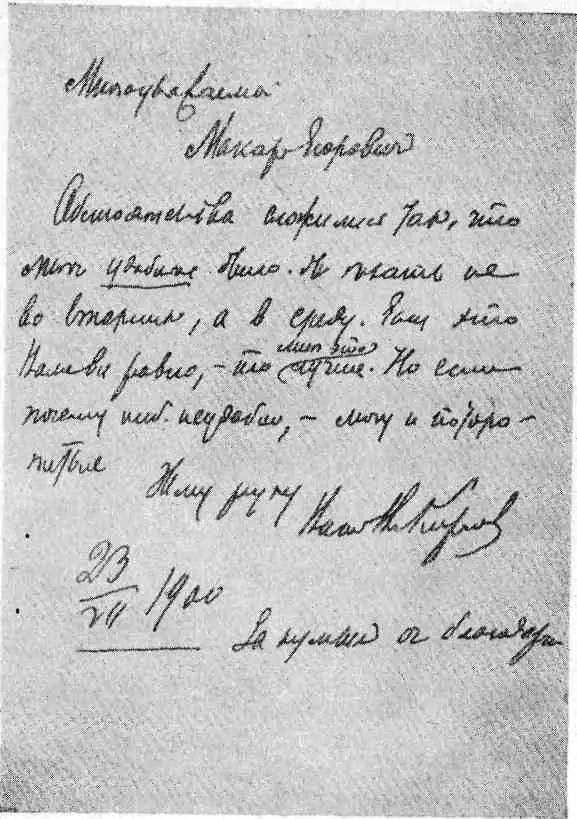 Многоуважаемый
Макар Егорович
Обстоятельства сложились так, что
мне удобнее было бы ехать не
во вторник, а в среду. Если это
Вам все равно, – то мне это лучше. Но если
почему ниб. неудобно, – могу и поторо-
питься
Жму руку
23/VII 1900
За оч благодарю